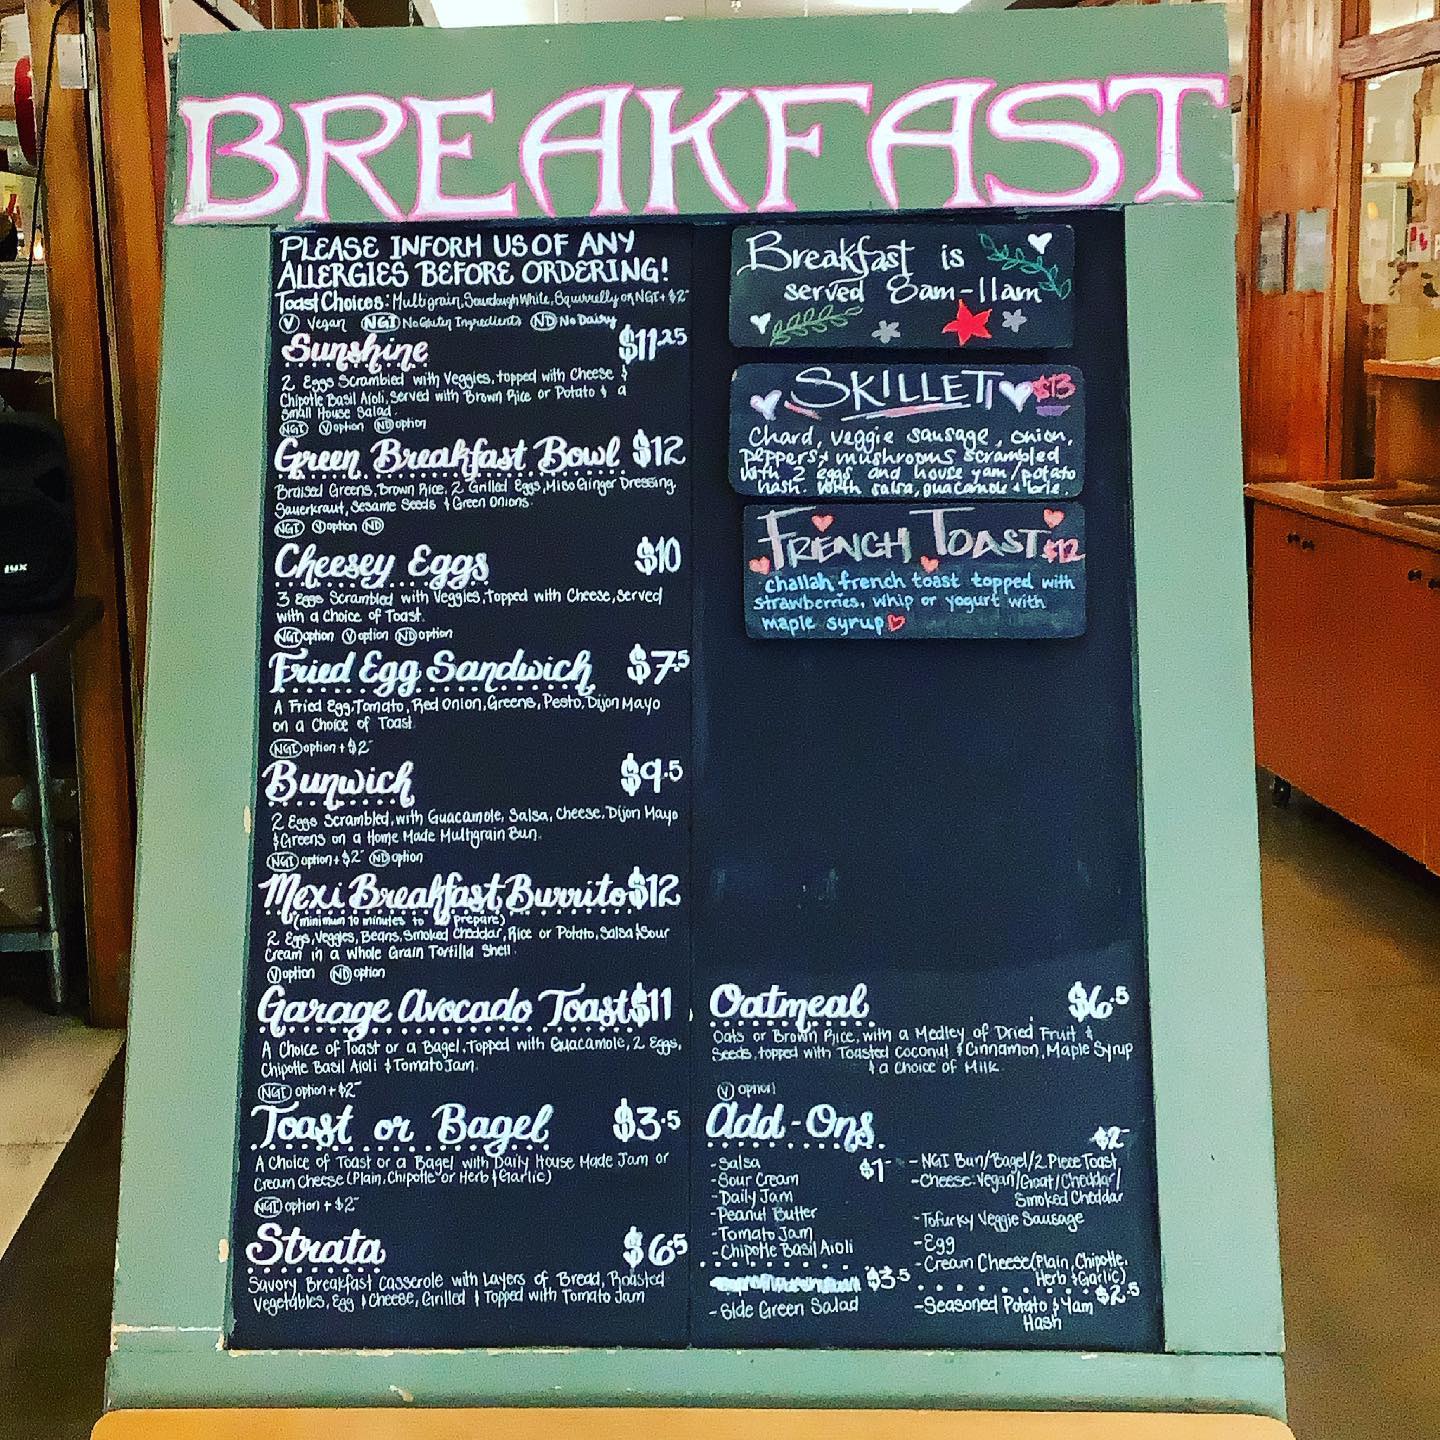 BREAKFAST
PLEASE INFORM US OF ANY
ALLERGIES BEFORE ORDERING!
Toast Choices: Multigrain, Sourdough White, Squirrelly or NGI + $2-
V Vegan NGI No Gluten Ingredients ND No Dairy
Sunshine $11.25
2 Eggs Scrambled with Veggies, topped with Cheese &
Chipotle Basil Aioli, Served with Brown Rice or Potato & a
Small House Salad.
NGI V option ND option
Green Breakfast Bowl $12
Braised Greens, Brown Rice, 2 Grilled Eggs, Miso Ginger Dressing,
Sauerkraut, Sesame Seeds & Green Onions.
NGI V option ND
Cheesey Eggs $10
3 Eggs Scrambled with Veggies, Topped with Cheese, Served
with a Choice of Toast.
NGI option V option ND option
Fried Egg Sandwich $7.5
A Fried Egg, Tomato, Red Onion, Greens, Pesto, Dijon Mayo
on a Choice of Toast
NGI option + $2-
Bunwich $9.5
2 Eggs Scrambled, with Guacamole, Salsa, Cheese, Dijon Mayo
& Greens on a Home Made Multigrain Bun.
NGI option + $2- ND option
Mexi Breakfast Burrito $12
(minimum 10 minutes to prepare)
2 Eggs, Veggies, Beans, Smoked Cheddar, Rice or Potato, Salsa & Sour
Cream in a Whole Grain Tortilla Shell.
V option ND option
Garage Avocado Toast $11
A Choice of Toast or a Bagel, Topped with Guacamole, 2 Eggs,
Chipotle Basil Aioli & Tomato Jam.
NGI option + $2-
Toast or Bagel $3.5
A Choice of Toast or a Bagel with Daily House Made Jam or
Cream Cheese (Plain, Chipotle or Herb & Garlic)
NGI option + $2-
Strata $6.5
Savory Breakfast Casserole with Layers of Bread, Roasted
Vegetables, Egg & Cheese, Grilled & Topped with Tomato Jam
Breakfast is
served 8am-11am
SKILLET $13
Chard, veggie sausage, onion,
peppers & mushrooms scrambled
with 2 eggs and house yam/potato
hash. With salsa, guacamole &
FRENCH TOAST $12
challah french toast topped with
strawberries, whip or yogurt with
maple syrup
Oatmeal $6.5
Oats or Brown Rice, with a Medley of Dried Fruit &
Seeds, topped with Toasted Coconut & Cinnamon, Maple Syrup
& a Choice of Milk
V option
Add-Ons
$1-
-Salsa
-Sour Cream
-Daily Jam
-Peanut Butter
-Tomato Jam
-Chipotle Basil Aioli
$3.5
-Side Green Salad
$2-
-NGI Bun/Bagel/2 Piece Toast
-Cheese-Vegan/Goat/Cheddar/
Smoked Cheddar
-Tofurky Veggie Sausage
-Egg
-Cream Cheese (Plain, Chipotle,
Herb & Garlic)
$2.5
-Seasoned Potato & Yam
Hash
lux